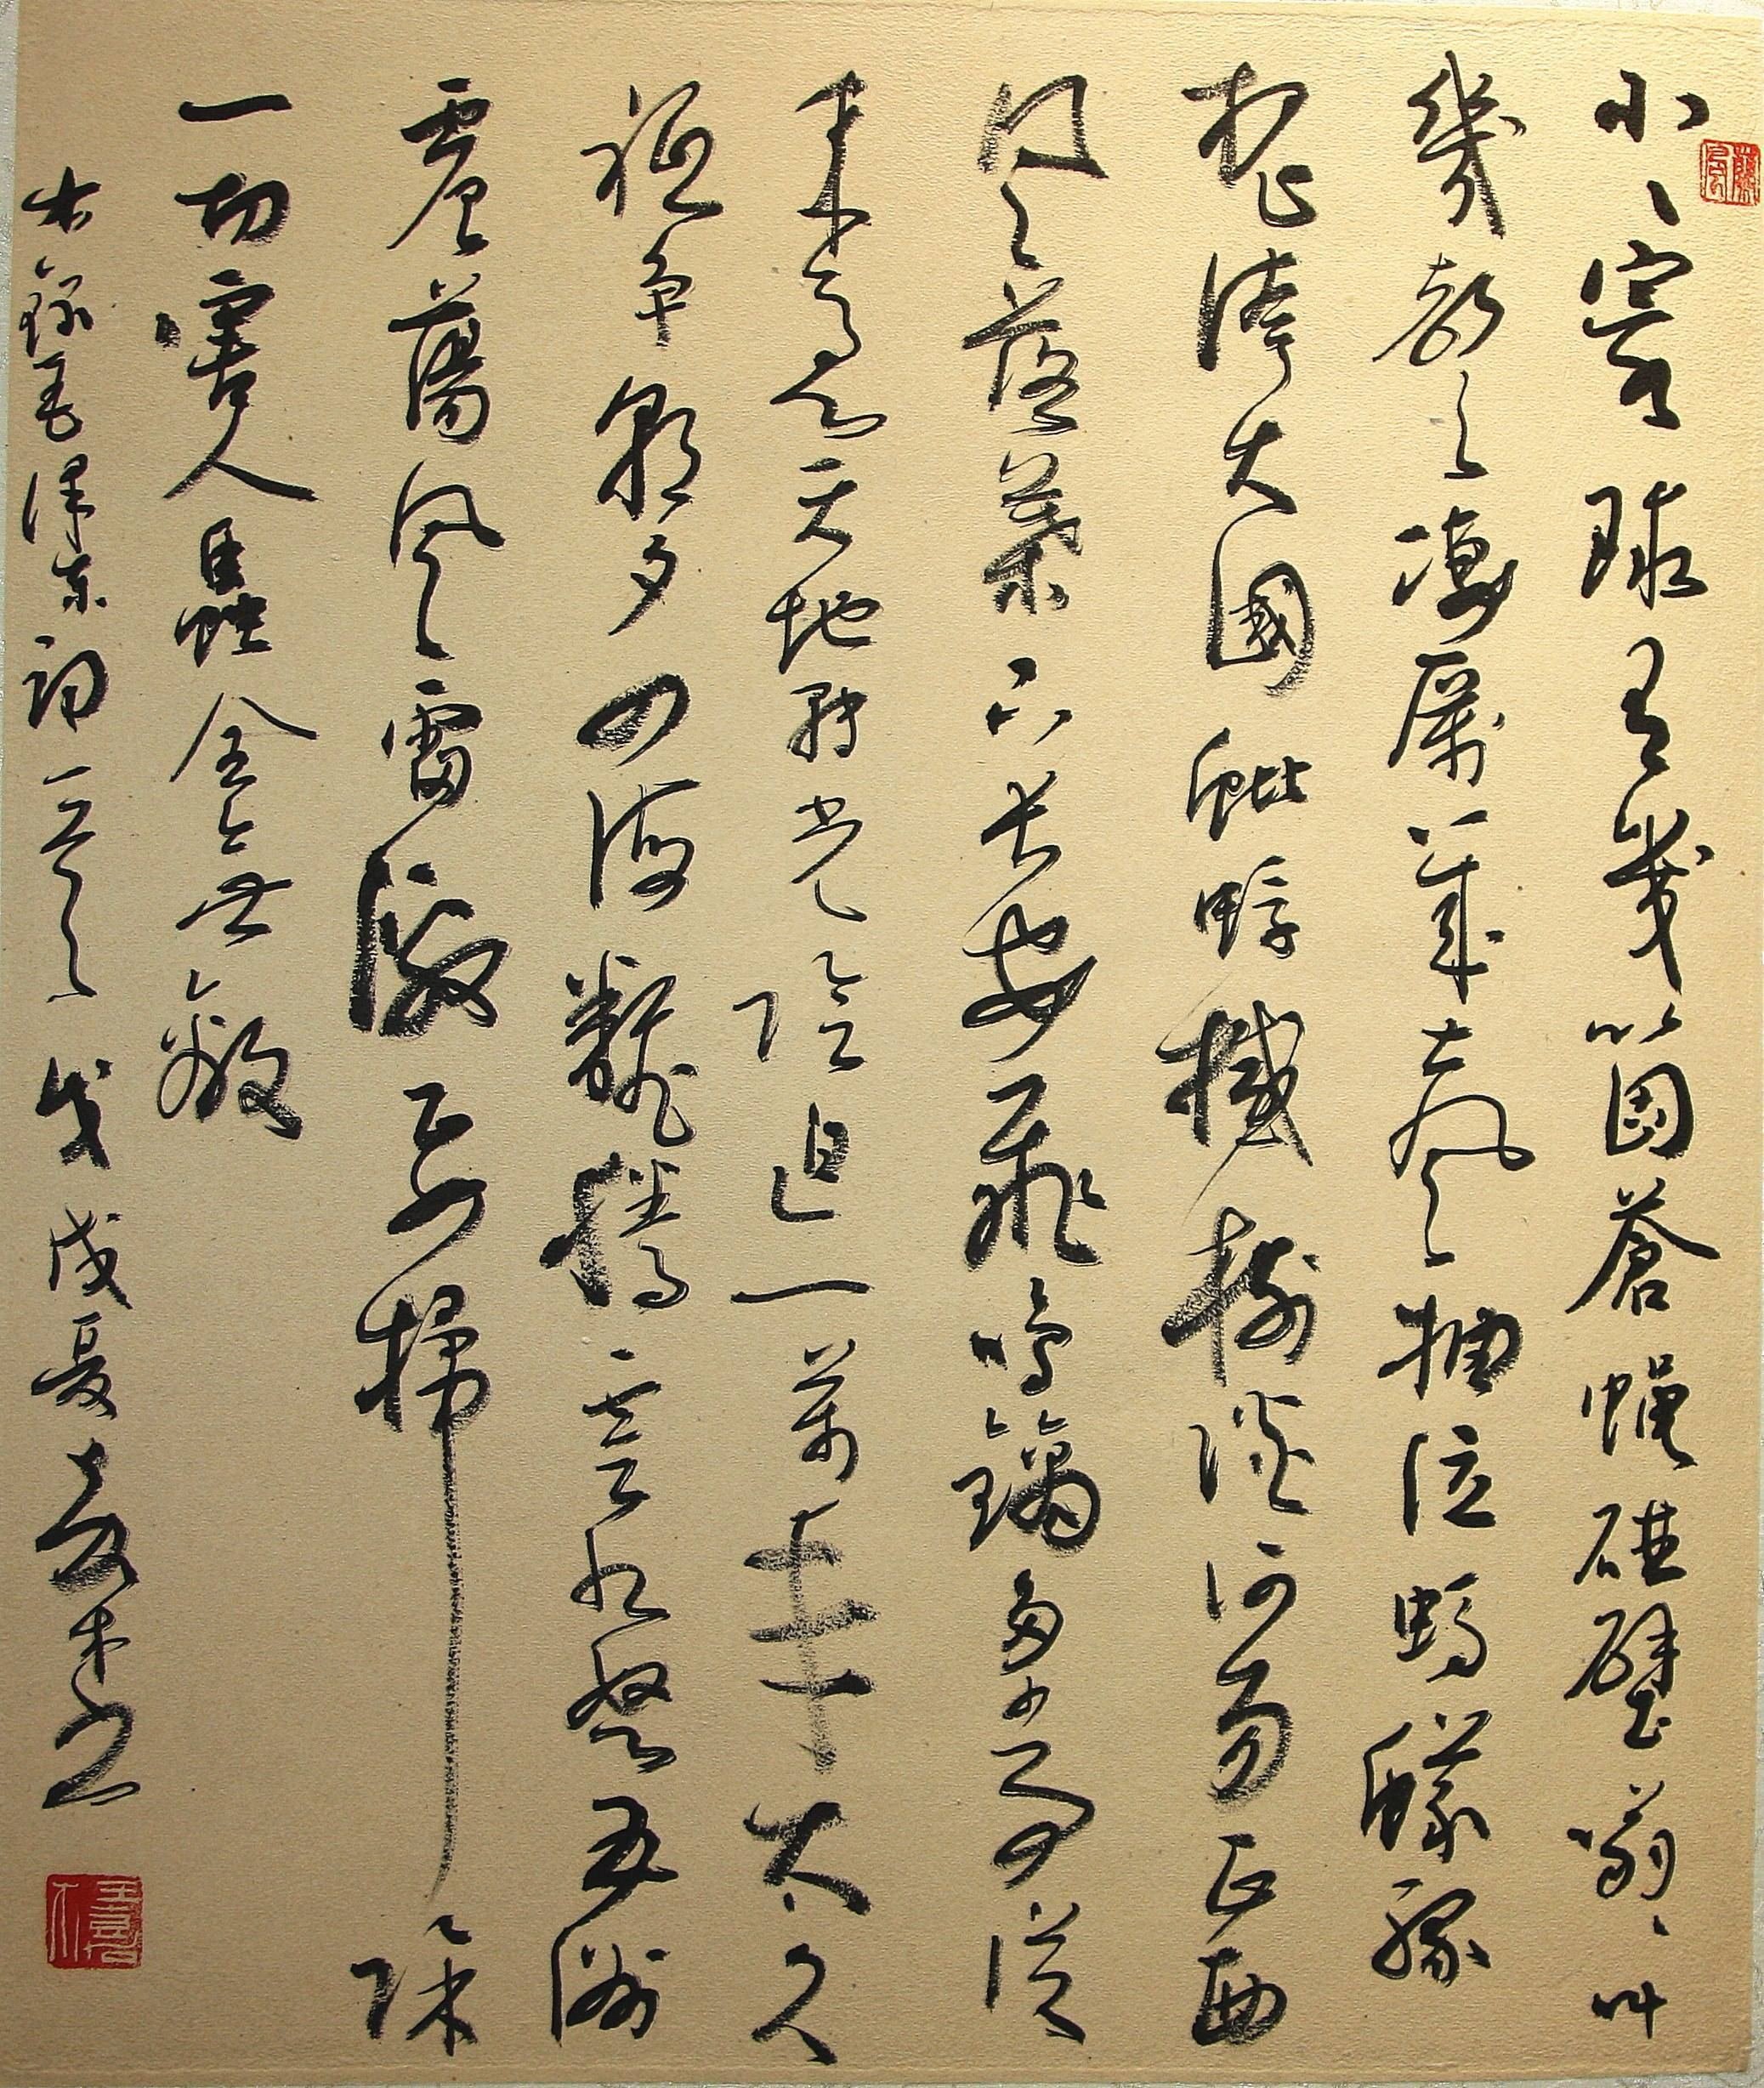 小小寰球有幾箇蒼蠅碰壁嗡嗡叫
幾聲凄厲幾聲抽泣螞蟻緣
槐誇大國蚍蜉撼樹談何易正西
風落葉下長安飛鳴鏑多少事從
來急天地轉光陰迫一萬年太久
祗争朝夕四海翻騰雲水怒五洲
震蕩風雷激要掃除
一切害人蟲全無敵
右錄毛澤東詞一首戊戌夏書